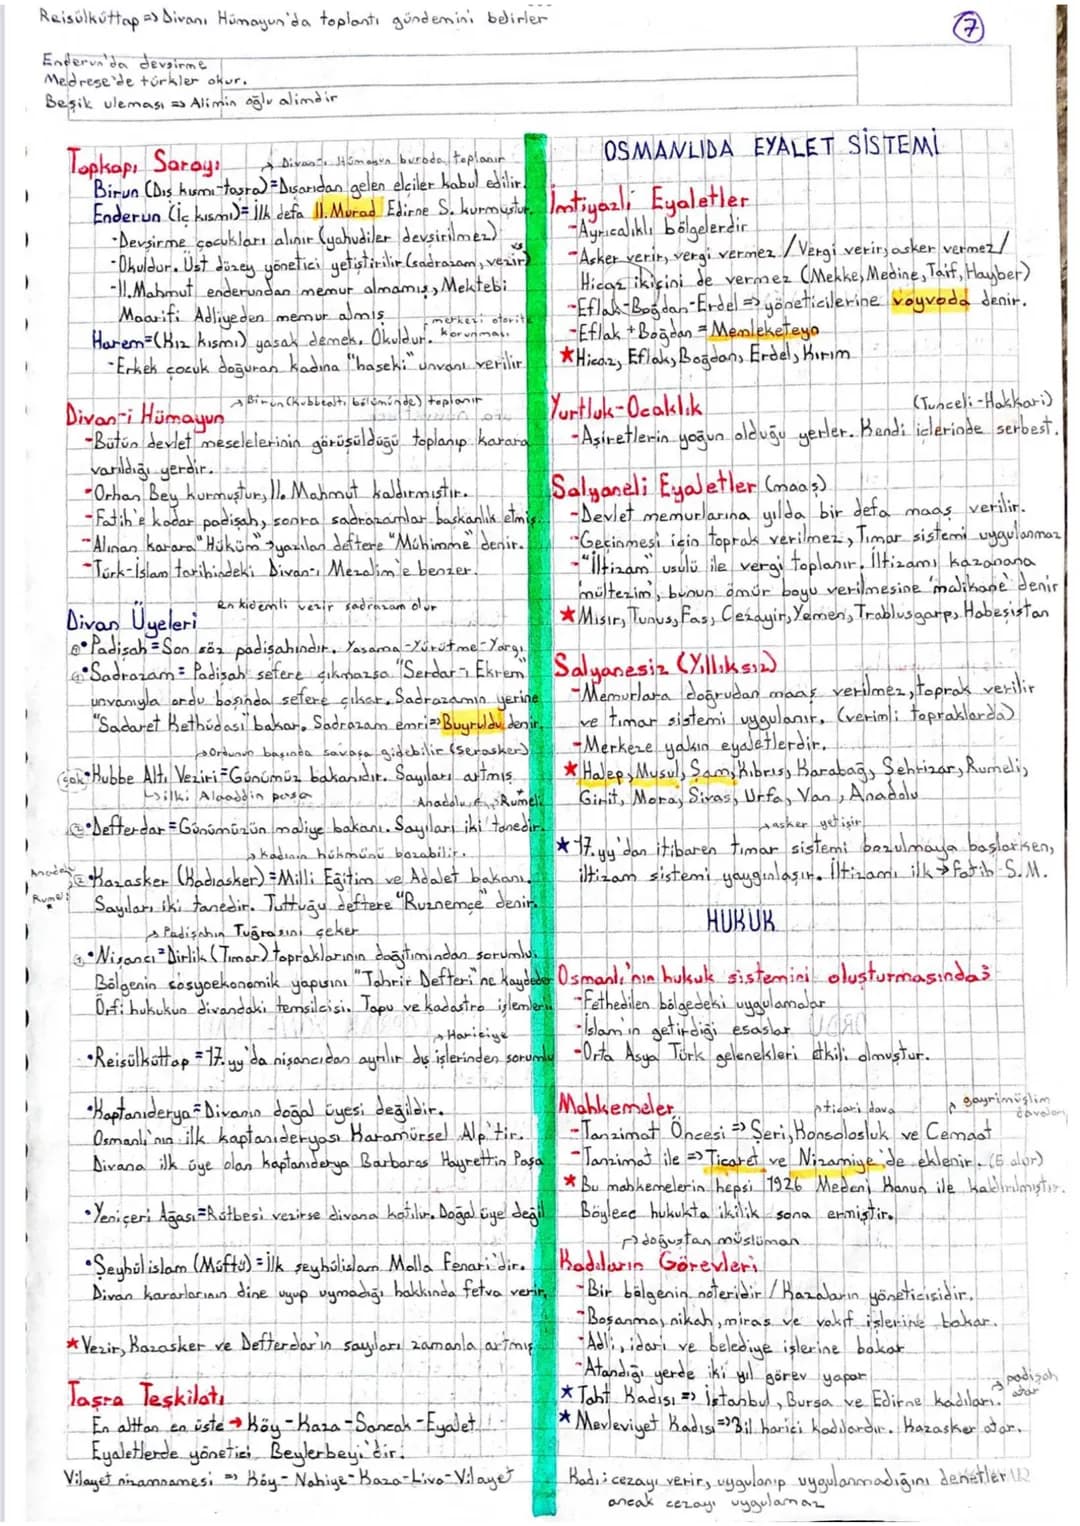 Reisülküttap => Divanı Hümayun'da toplantı gündemini belirler
7
Enderun'da devşirme
Medrese'de türkler okur.
Beşik uleması => Alimin oğlu alimdir
Topkapı Sarayı → Divan-ı Hümayun burada toplanır
Birun (Dış kısmı-taşra) = Dışarıdan gelen elçiler kabul edilir.
Enderun (İç kısmı) = İlk defa II. Murad Edirne S. kurmuştur.
-Devşirme çocukları alınır (yahudiler devşirilmez)
-Okuldur. Üst düzey yönetici yetiştirilir (sadrazam, vezir)
-II. Mahmut enderundan memur almamış, Mektebi
Maarifi Adliyeden memur almış
merkezi otorite korunması
Harem = (Kız kısmı) yasak demek. Okuldur.
-Erkek çocuk doğuran kadına "haseki" unvanı verilir
→ Birun (kubbealtı bölümünde) toplanır
Divan-ı Hümayun
-Bütün devlet meselelerinin görüşüldüğü toplanıp karara
varıldığı yerdir.
-Orhan Bey kurmuştur, II. Mahmut kaldırmıştır.
-Fatih'e kadar padişah, sonra sadrazamlar başkanlık etmiş.
-Alınan karara "Hüküm" → yazılan deftere "Mühimme" denir.
-Türk-İslam tarihindeki Divan-ı Mezalim'e benzer.
En kıdemli vezir sadrazam olur
Divan Üyeleri
•Padişah = Son söz padişahındır. Yasama-Yürütme-Yargı
•Sadrazam = Padişah sefere çıkmazsa "Serdar-ı Ekrem"
unvanıyla ordu başında sefere çıkar. Sadrazamın yerine
"Sadaret Kethüdası" bakar. Sadrazam emri => Buyruldu denir.
→ Ordunun başında savaşa gidebilir (serasker)
(çok) •Kubbe Altı Veziri = Günümüz bakanıdır. Sayıları artmış
→ ilki Alaaddin paşa
Anadolu Rumeli
② •Defterdar = Günümüzün maliye bakanı. Sayıları iki tanedir.
→ kadının hükmünü bozabilir.
Anadolu
Rumeli
② •Kazasker (Kadıasker) = Milli Eğitim ve Adalet bakanı.
Sayıları iki tanedir. Tuttuğu deftere "Ruznemçe" denir.
→ Padişahın Tuğrasını çeker
① •Nişancı = Dirlik (Tımar) topraklarının dağıtımından sorumlu.
Bölgenin sosyoekonomik yapısını "Tahrir Defteri"ne kaydeder
Örfi hukukun divandaki temsilcisi. Tapu ve kadastro işlemleri
→ Hariciye
•Reisülküttap = 17.yy'da nişancıdan ayrılır dış işlerinden sorumlu
•Kaptanıderya = Divanın doğal üyesi değildir.
Osmanlı'nın ilk kaptanıderyası Karamürsel Alp'tir.
Divana ilk üye olan kaptanıderya Barbaros Hayrettin Paşa
•Yeniçeri Ağası = Rütbesi vezirse divana katılır. Doğal üye değil
•Şeyhülislam (Müftü) = İlk şeyhülislam Molla Fenari'dir.
Divan kararlarının dine uyup uymadığı hakkında fetva verir.
★Vezir, Kazasker ve Defterdar'ın sayıları zamanla artmış
Taşra Teşkilatı
En alttan en üste → Köy-Kaza-Sancak-Eyalet
Eyaletlerde yönetici Beylerbeyi'dir.
Vilayet nizamnamesi => Köy-Nahiye-Kaza-Liva-Vilayet
OSMANLIDA EYALET SİSTEMİ
İmtiyazlı Eyaletler
-Ayrıcalıklı bölgelerdir
-Asker verir, vergi vermez / Vergi verir, asker vermez /
Hicaz ikisini de vermez (Mekke, Medine, Taif, Hayber)
-Eflak-Boğdan-Erdel => yöneticilerine voyvoda denir.
-Eflak + Boğdan = Memleketeyn
★Hicaz, Eflak, Boğdan, Erdel, Kırım
Yurtluk-Ocaklık (Tunceli-Hakkari)
-Aşiretlerin yoğun olduğu yerler. Kendi içlerinde serbest.
Salyaneli Eyaletler (maaş)
-Devlet memurlarına yılda bir defa maaş verilir.
-Geçinmesi için toprak verilmez, Tımar sistemi uygulanmaz
-"İltizam" usulü ile vergi toplanır. İltizamı kazanana
mültezim, bunun ömür boyu verilmesine 'malikane' denir
★Mısır, Tunus, Fas, Cezayir, Yemen, Trablusgarp, Habeşistan
Salyanesiz (Yıllıksız)
-Memurlara doğrudan maaş verilmez, toprak verilir
ve tımar sistemi uygulanır. (verimli topraklarda)
-Merkeze yakın eyaletlerdir.
★Halep, Musul, Şam, Kıbrıs, Karabağ, Şehrizar, Rumeli,
Girit, Mora, Sivas, Urfa, Van, Anadolu
→ asker yetişir
★17.yy'dan itibaren tımar sistemi bozulmaya başlarken,
iltizam sistemi yaygınlaşır. İltizamı ilk → Fatih S.M.
HUKUK
Osmanlı'nın hukuk sistemini oluşturmasında;
-Fethedilen bölgedeki uygulamalar
-İslam'ın getirdiği esaslar
-Orta Asya Türk gelenekleri etkili olmuştur.
Mahkemeler
ticari dava
gayrimüslim davaları
-Tanzimat Öncesi => Şeri, Konsolosluk ve Cemaat
-Tanzimat ile => Ticaret ve Nizamiye'de eklenir. (5 olur)
★Bu mahkemelerin hepsi 1926 Medeni Kanun ile kaldırılmıştır.
Böylece hukukta ikilik sona ermiştir.
→ doğuştan müslüman
Kadıların Görevleri
-Bir bölgenin noteridir / Kazaların yöneticisidir.
-Boşanma, nikah, miras ve vakıf işlerine bakar.
-Adli, idari ve belediye işlerine bakar
-Atandığı yerde iki yıl görev yapar
→ padişah atar
★Taht Kadısı => İstanbul, Bursa ve Edirne kadıları.
★Mevleviyet Kadısı => Bil harici kadılardır. Kazasker atar.
Kadı: cezayı verir, uygulanıp uygulanmadığını denetler
ancak cezayı uygulamaz